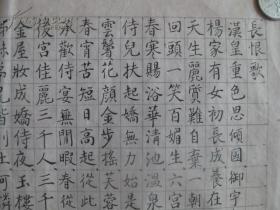 長恨歌
漢皇重色思傾國御宇
楊家有女初長成養在
天生麗質難自棄一朝
回頭一笑百媚生六宮
春寒賜浴華清池溫泉
侍兒扶起嬌無力始是
雲鬢花顏金步搖芙蓉
春宵苦短日高起從此
承歡侍宴無閒暇春從
後宮佳麗三千人三千
金屋妝成嬌侍夜玉樓
姊妹弟兄皆列土可憐